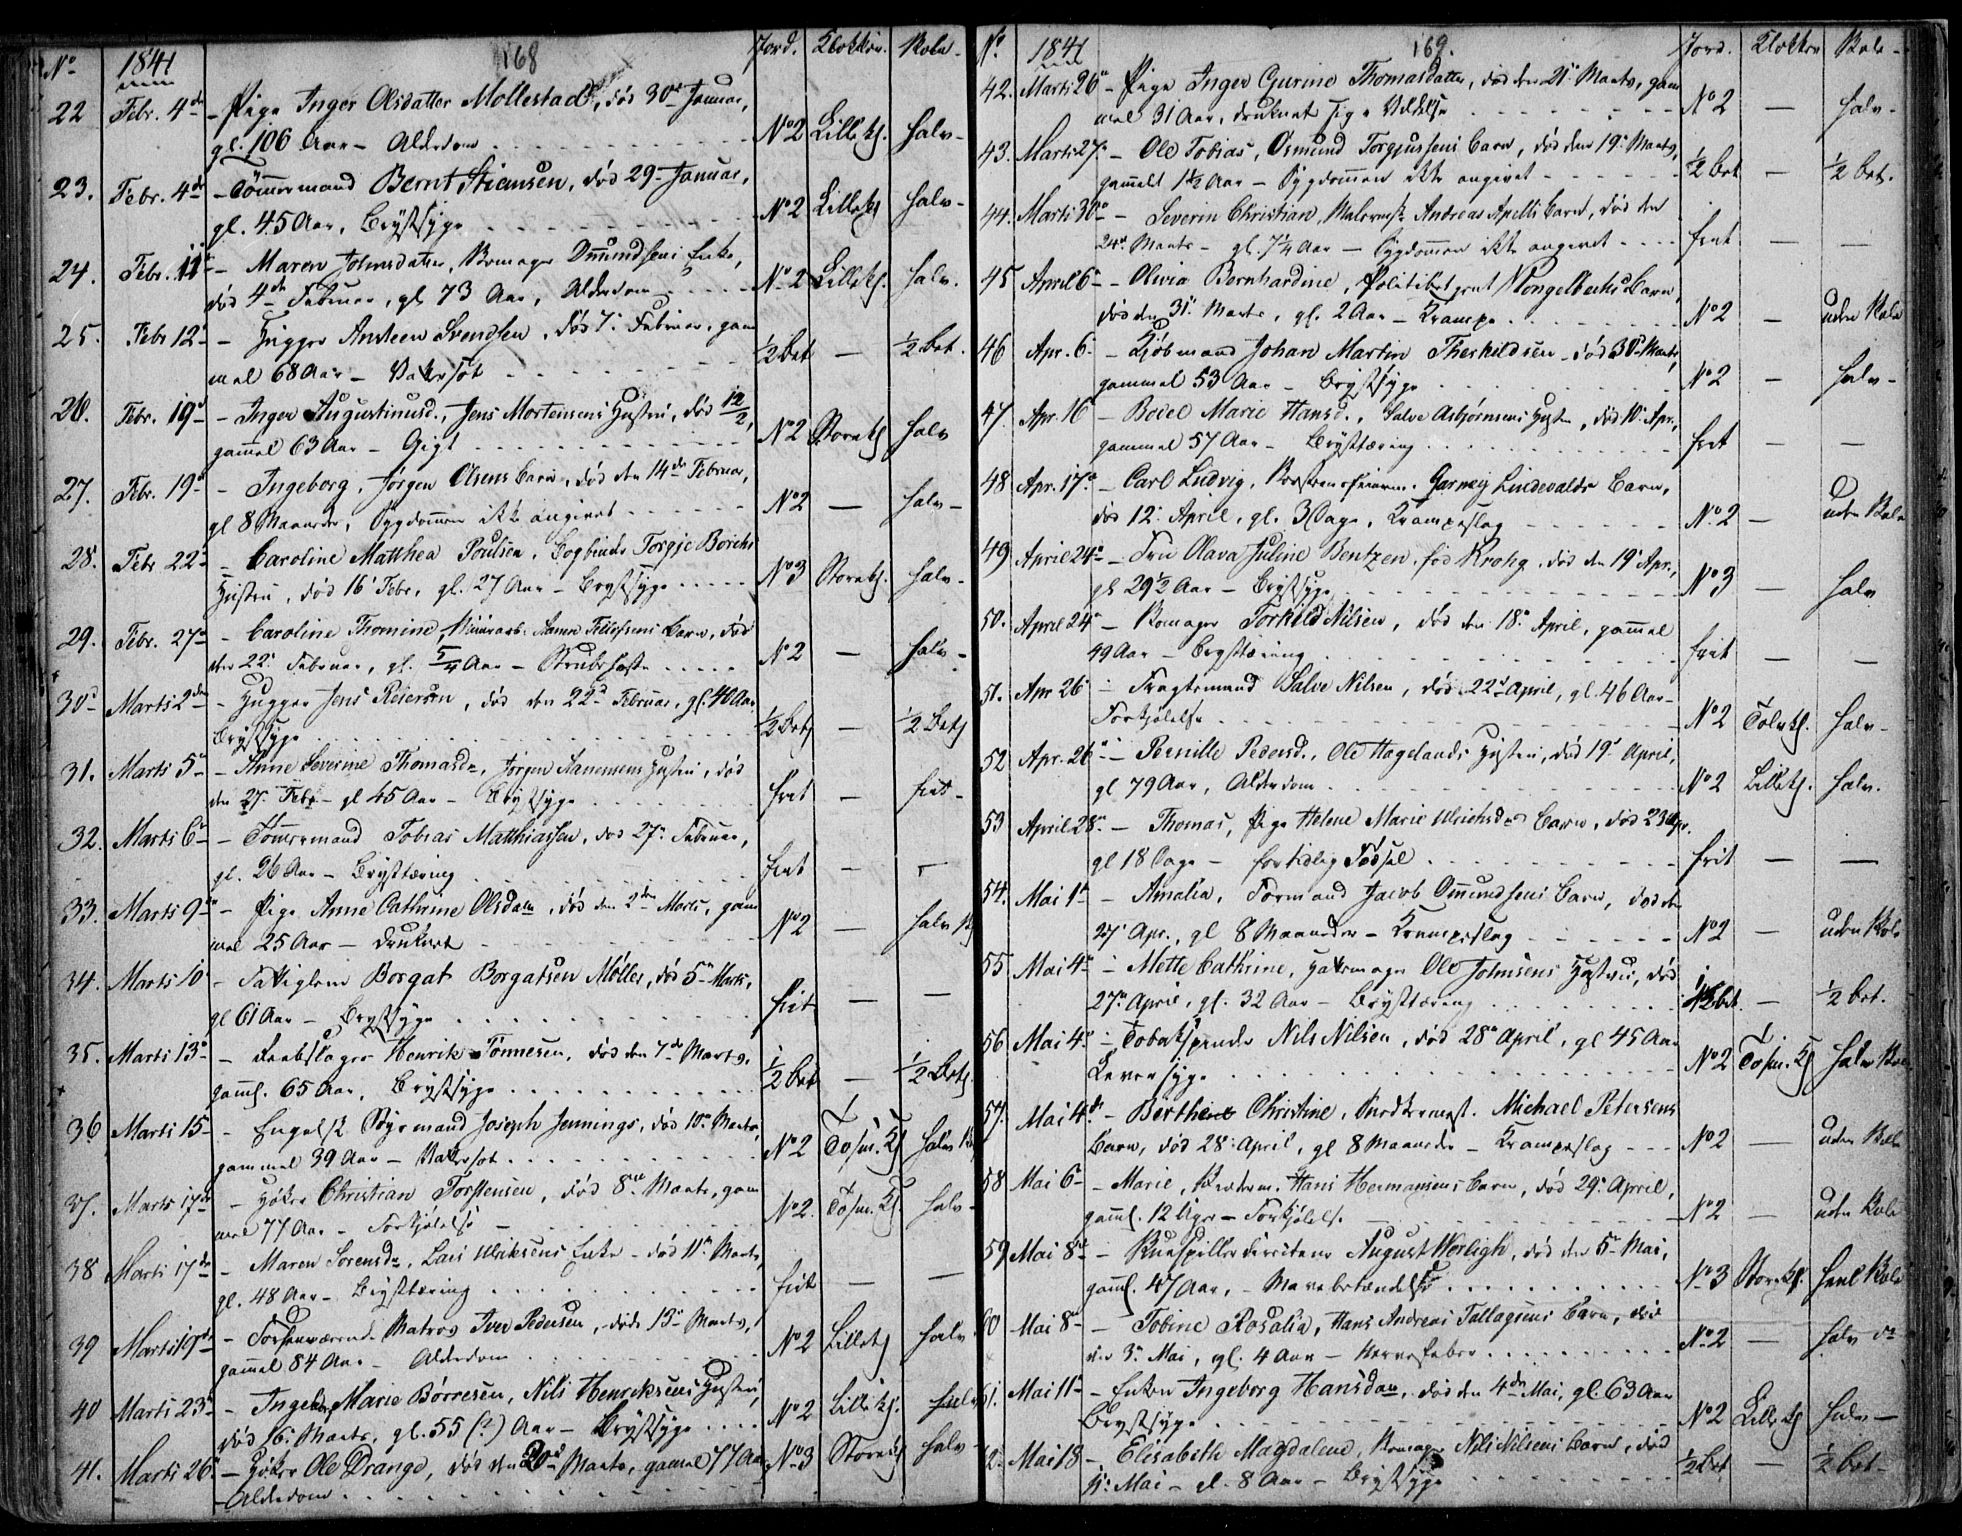 168
No 1841 Jord. Klokker. Bolu.
22 Febr. 4de - Pige Inger Olsdatter Mollestad, død 30te Januar, No 2 Lille Kl. halv -
gl. 106 Aar - Alderdom
23. Febr. 4de - Tømmermand Bernt Stiansen, død 29 Januar, No 2 Lille Kl halv -
gl. 45 Aar, Brystsyge
24. Febr. 11 - Maren Johnsdatter, Enke, No 2 Lille Kl. halv.
død 4de Februar, gl 73 Aar, Alderdom
25. Febr 12 - Hugger Ansteen Svendsen, død 7. Februar, gam ½ bet — ½ bet.
mel 68 Aar - Vatersot
26. Febr. 19 - Inger Augustinusd., Jens Mortensens Hustru, død 12/2, No 2 Store Kl halv
gammel 63 Aar - Gigt
27. Febr. 19 - Ingeborg, Jørgen Olsens Barn, død den 14de Februar, No 2 — halv -
gl 8 Maaneder, Sygdommen ikke angivet
28. Febr 22 - Caroline Matthea Poulsen, Bogbinder Torgje Borchs No 3 Store Kl. halv -
Hustru, død 16 Febr, gl. 27 Aar - Brystsyge
29. Febr. 27 - Caroline Thomine, Tellefsens Barn, død No 2 — halv -
den 22. Februar, gl. 5/4 Aar - Strubehoste
30 Marts 2den - Hugger Jens Reiersen, død den 22d Februar, gl. 40 Aar ½ Bet — ½ Bet
Brystsyge
31. Marts 5 - Anne Severine Thomasd., Jørgen Hustru, død frit — frit -
den 27. Febr - gl 45 Aar - Brystsyge
32. Marts 6 - Tømmermand Tobias Matthiassen, død 27. Februar, frit — -
gl. 26 Aar - Brysttæring
33. Marts 9 - Pige Anne Cathrine Olsd., død den 2den Marts, gam No 2 — halv
mel 25 Aar - druknet
34. Marts 10 - Fattiglem Borgat Borgatsen Møller, død 5 Marts, frit — —
gl 61 Aar - Brystsyge
35. Marts 13 - Reebslager Henrik Tønnesen, død den 7de Marts, ½ bet — ½ Bet
gaml. 65 Aar, Brystsyge
36 Marts 15 - Engelsk Styrmand Joseph Jennings, død 10 Marts, No 2 Tosm. Kl halv
gammel 39 Aar - Vatersot
37. Marts 17de - Høker Christian Torstensen, død 8 Marts, gam No 2. Tosm. Kl. halv -
mel 77 Aar - Forkjølelse
38 Marts 17de - Maren Sørensd., Lars Ulriksens Enke - død 11 Marts, frit — —
gl. 48 Aar - Brysttæring
39 Marts 19de - Forhenværende Matros Iver Pedersen, død 13 Marts, No 2 Lille Kl halv
gammel 84 Aar - Alderdom
40 Marts 23 - Ingeborg Marie Børresen, Nils Henriksens Hustru, No 2 Lille Kl. halv
død 16. Marts, gl. 55 (?) Aar - Brystsyge
41. Marts 26 - Høker Ole Drange, død den 20 Marts, gammel 77 Aar No 3 Store Kl halv -
- Alderdom
169.
No. 1841 Jord. Klokker Bolu -
42. Marts 26 - Pige Inger Gurine Thomasdatter, død den 21 Marts, gam No 2 — halv -
mel 31 Aar, druknet sig
43. Marts 27 - Ole Tobias, Osmund Torgjussens Barn, død den 19. Marts, ½ bet — ½ bet.
gammelt 1½ Aar - Sygdommen ikke angivet
44. Marts 30 - Severin Christian, Malermest. Andreas Apelts Barn, død den frit — —
24 Marts - gl. 7¼ Aar - Sygdommen ikke angivet
45 April 6 - Olivia Bernhardine, Politibetjent Barn, No 2 — uden Bolu
død den 31 Marts, gl. 2 Aar - Krampe
46 Apr. 6 - Kjøbmand Johan Martin Therkildsen - død 30 Marts, No 2 — halv -
gammel 53 Aar - Brystsyge
47. Apr. 16 - Bodel Marie Hansd., Salve Asbjørnsens Hustru, død 10 Apr., frit — —
gammel 57 Aar - Brysttæring
48 Apr. 17 - Carl Ludvig, Lindevalds Barn, No. 2 — uden Bolu
død 12. April, gl. 3 Dage, Krampeslag
49 April 24 - Fru Olava Juline Bentzen, fød Krohg, død den 19 Apr., No 3 halv
gl. 29½ Aar - Brystsyge
50. April 24 - Torkild Nilsen, død den 18. April, gammel frit — —
49 Aar - Brysttæring
51. Apr 26 - Fragtemand Salve Nilsen, død 22 April, gl. 46 Aar - No 2 Tolv Kl. halv -
Forkjølelse
52 Apr. 26 - Pernille Pedersd., Ole Hagelands Hustru, død 19 April, No 2 Lille Kl. halv.
gl 79 Aar, Alderdom
53 April 28 - Thomas, Pige Helene Marie Ulrichsd. Barn, død 23 Apr. frit — —
gl 18 Dage - for tidlig Fødsel
54. Mai 1 - Amalia, Formand Jacob Omundsens Barn, død den No 2 — uden Bolu
27 Apr., gl 8 Maaneder - Krampeslag
55. Mai 4 - Mette Cathrine, Ole Johnsens Hustru, død ½ bet — ½ bet.
27 April, gl. 32 Aar - Brysttæring
56 Mai 4 - Tobakspinder Nils Nilsen, død 28 April, gl 45 Aar No 2 Tosm. Kl halv Bolu
Leversyge
57. Mai 4de - Berthe Christine, Snedkermest. Michael Petersens No 2 — uden Bolu
Barn, død 28 April, gl 8 Maaneder - Krampeslag
58 Mai 6 - Marie, Hans Hermansens Barn, død 29 April, No 2 — uden Bolu
gaml. 12 Uger - Forkjølelse
59 Mai 8 - Skuespillerdirecteur August Werligh, død den 5 Mai, No 3 Store Kl. heel Bolu
gaml. 47 Aar, - Mavebetændelse
60 Mai 8 - Tobine Rosalia, Hans Andreas Tallagsens Barn, død No 2 — halv do
den 3. Mai, gl. 4 Aar - Nervefeber
61. Mai 11 - Enken Ingeborg Hansd., død den 4de Mai, gl. 63 Aar No 2 Lille Kl halv —
Brystsyge
62. Mai 18 - Elisabeth Magdalene, Nils Nilsens Barn, død ½ bet — ½ bet -
11. Mai - gl. 8 Aar - Brystsyge